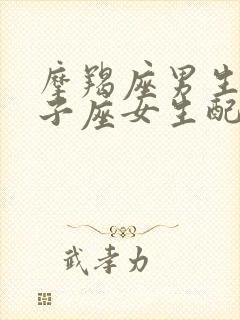 摩羯座男生
子座女生配
武孝力